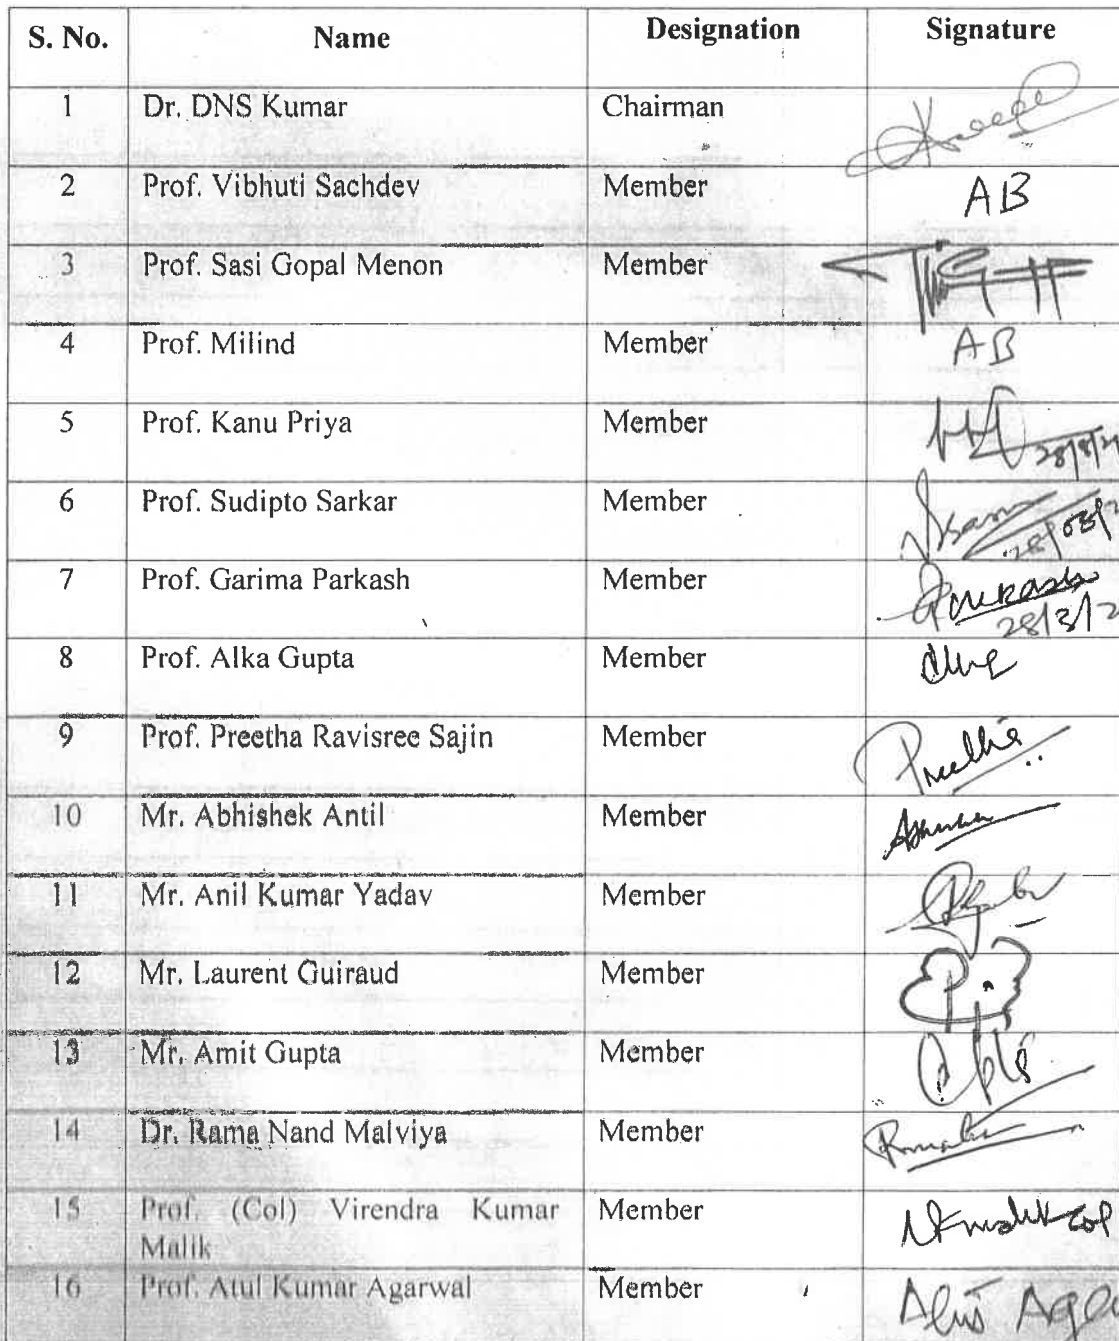 S. No. Name Designation Signature
1 Dr. DNS Kumar Chairman
2 Prof. Vibhuti Sachdev Member AB
3 Prof. Sasi Gopal Menon Member
4 Prof. Milind Member AB
5 Prof. Kanu Priya Member
6 Prof. Sudipto Sarkar Member
7 Prof. Garima Parkash Member
28/3/2
8 Prof. Alka Gupta Member
9 Prof. Preetha Ravisree Sajin Member
10 Mr. Abhishek Antil Member
11 Mr. Anil Kumar Yadav Member
12 Mr. Laurent Guiraud Member
13 Mr. Amit Gupta Member
14 Dr. Rama Nand Malviya Member
15 Prof. (Col) Virendra Kumar Member
Malik
16 Prof. Atul Kumar Agarwal Member